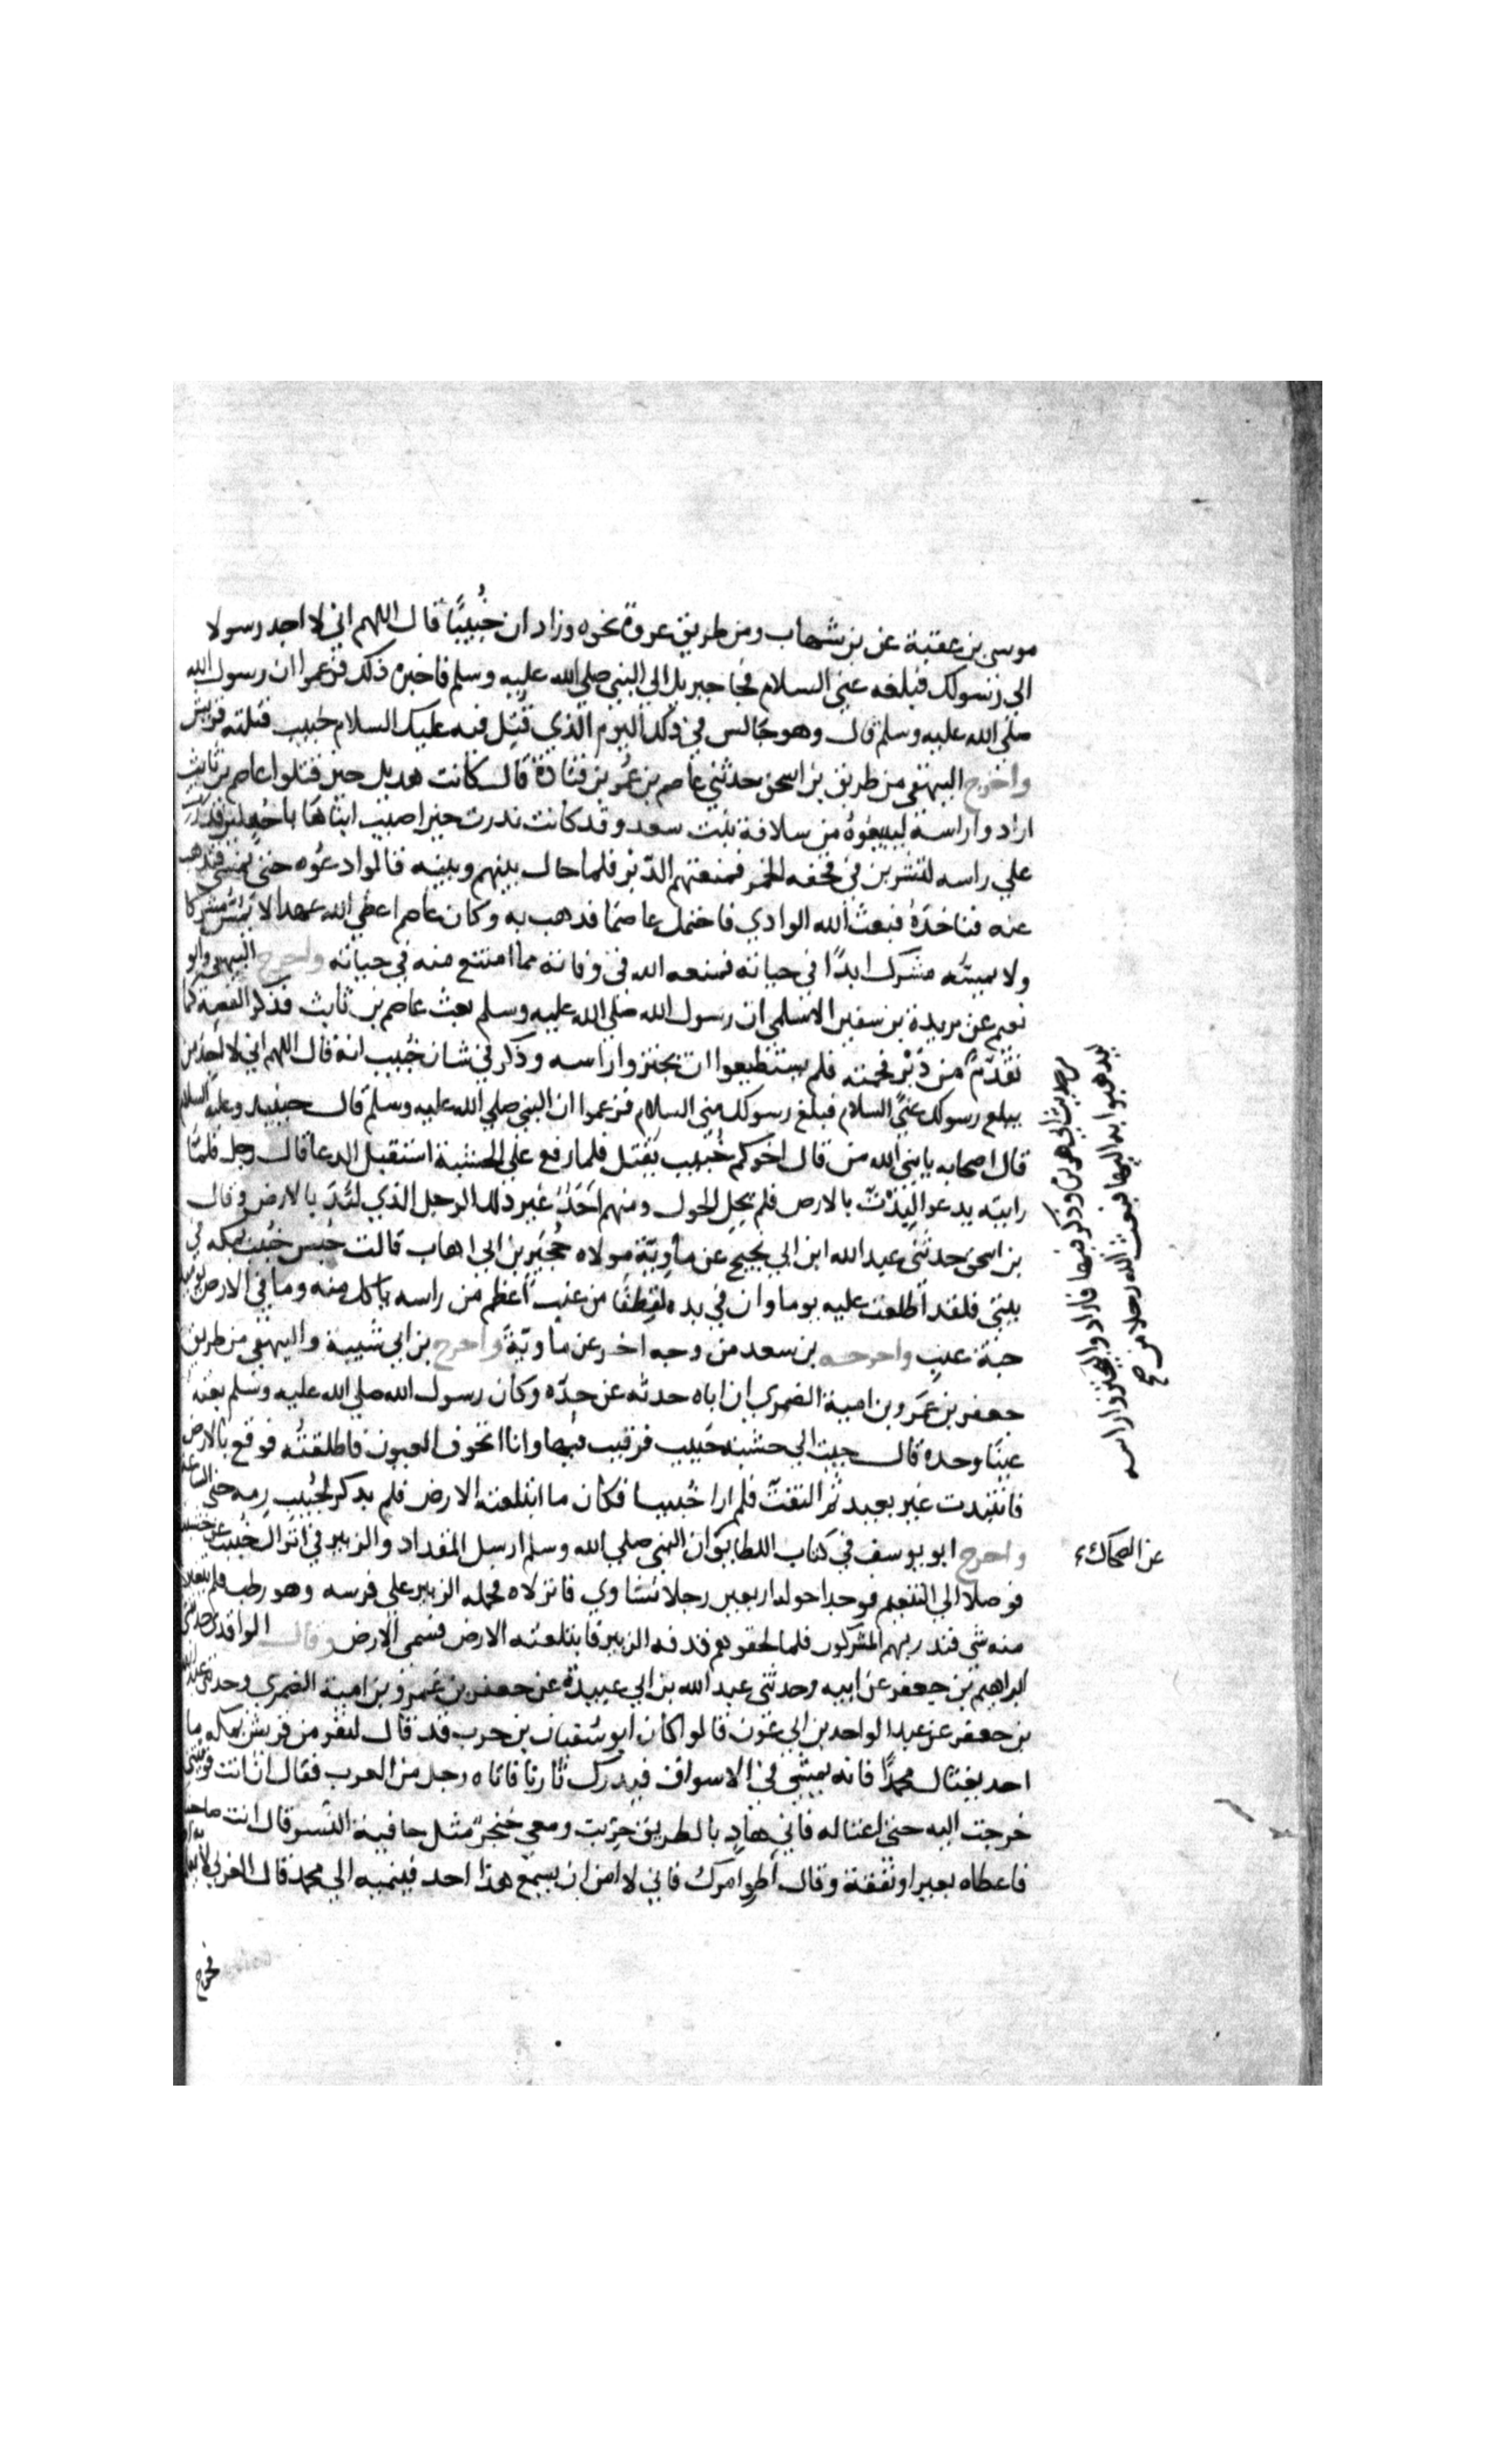 موسى بن عقبة عن بن شهاب ومن طريق عروة نحوه وزاد ان خُبيبًا قال اللهم اني لا اجد رسولا
الى رسولك فبلغه عني السلام فجا جبريل الي النبي صلي الله عليه وسلم فاخبره ذلك فزعموا ان رسول الله
صلي الله عليه وسلم قال وهو جالس في ذلك اليوم الذي قتل فيه عليك السلام خبيب قتلته قريش
واخرج البيهقي من طريق بن اسحق حدثني عاصم بن عمر بن قتادة قال كانت هديل حين قتلوا عاصم بن ثابت
ارادوا راسه ليبيعوه من سلافة بنت سعد وقد كانت ندرت حين اصيب ابناها باحد لين قدرت
علي راسه لتشربن في قحفه الخمر فمنعتهم الدبر فلما حال بينهم وبينه قالوا دعوه حتي يمسي فتدهب
عنه فناخده فبعث الله الوادي فاحتمل عاصما فدهب به وكان عاصم اعطي الله عهدا لا يمس مشركا
ولا يمسه مشرك ابدًا في حياته فمنعه الله في وفاته مما امتنع منه في حياته واخرج البيهقي وابو
نعيم عن بريدة بن سفين الاسلمي ان رسول الله صلي الله عليه وسلم بعث عاصم بن ثابت فذكر القصة كما
تقدم من دبر فحمته فلم يستطيعوا ان يجتزوا راسه وذكر في شان خبيب انه قال اللهم اني لا اجد من
يبلغ رسولك عني السلام فبلغ رسولك مني السلام فزعموا ان النبي صلي الله عليه وسلم قال حينيد وعليه السلام
قال اصحابه يا نبي الله من قال اخوكم خبيب يقتل فلما رفع علي الخشبة استقبل الدعا قال رجل فلما
رايته يدعو البدت بالارض فلم يحل الحول ومنهم احد غير ذلك الرجل الذي لبد بالارض وقال
بن اسحق حدثني عبد الله ابن ابي نجيح عن ماوية مولاه حجير بن ابي اهاب قالت حبس خبيب بمكه في
بيتي فلقد اطلعت عليه يوما وان في يده لقطفا من عنب اعظم من راسه ياكل منه وما في الارض يوميد
حبة عنب واخرجه بن سعد من وجه اخر عن ماوية واخرج بن ابي شيبة والبيهقي من طريق
جعفر بن عمرو بن امية الضمري ان اباه حدثه عن جده وكان رسول الله صلي الله عليه وسلم بعثه
عينا وحده قال جيت الي خشبة خبيب فرقيت فيها وانا اتخوف العيون فاطلقته فوقع بالارض
فانتبدت غير بعيد ثم التفت فلم ارا خبيبا فكان ما ابتلعته الارض فلم يدكر لخبيب رمه حتي الساعة
واخرج ابو يوسف في كتاب اللطايف ان النبي صلي الله وسلم ارسل المقداد والزبير في انزال خبيب عن خشبته
فوصلا الي التنعيم فوجدا حوله اربعين رجلا نشاوي فانزلاه فحمله الزبير علي فرسه وهو رطب لم يتغير
منه شي فندر بهم المشركون فلما لحقوهم قدفه الزبير فابتلعته الارض فسمي الارض وقال الواقدي حدثني
ابراهيم بن جعفر عن ابيه وحدثني عبد الله بن ابي عبيدة عن جعفر بن عمرو بن امية الضمري وحدثني عبد الله
بن جعفر عن عبد الواحد بن ابي عون قالوا كان ابو سفيان بن حرب قد قال لنفر من قريش بمكه ما
احد يغتال محمدًا فانه يمشي في الاسواق فيدرك ثارنا فاتاه رجل من العرب فقال ان انت قويتني
خرجت اليه حتي اغتاله فاني هاد بالطريق خريت ومعي خنجر مثل خافية النسر قال انت صاحبنا
فاعطاه بعيرا ونفقة وقال اطو امرك فاني لا امن ان يسمع هذا احد فينميه الي محمد قال العربي لا يعلم
فخرج
من حديث ابي هريرة وذكر فيها فارادوا ليجتزوا راسه
ليدهبوا به اليها فبعث الله رجلا من صح
عن الضحاك